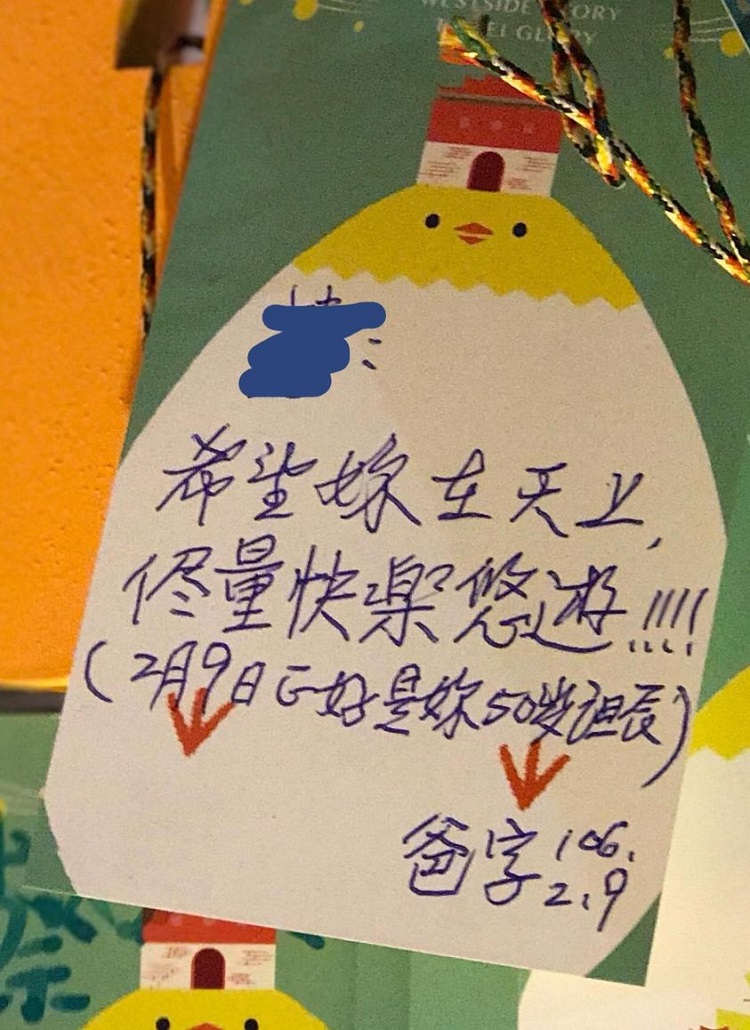 WESTSIDE STORY
TAIPEI GLORY
希望妳在天上,
侭量快樂悠遊!!!!
(2月9日正好是妳50岁诞辰)
爸字 106.
2.9